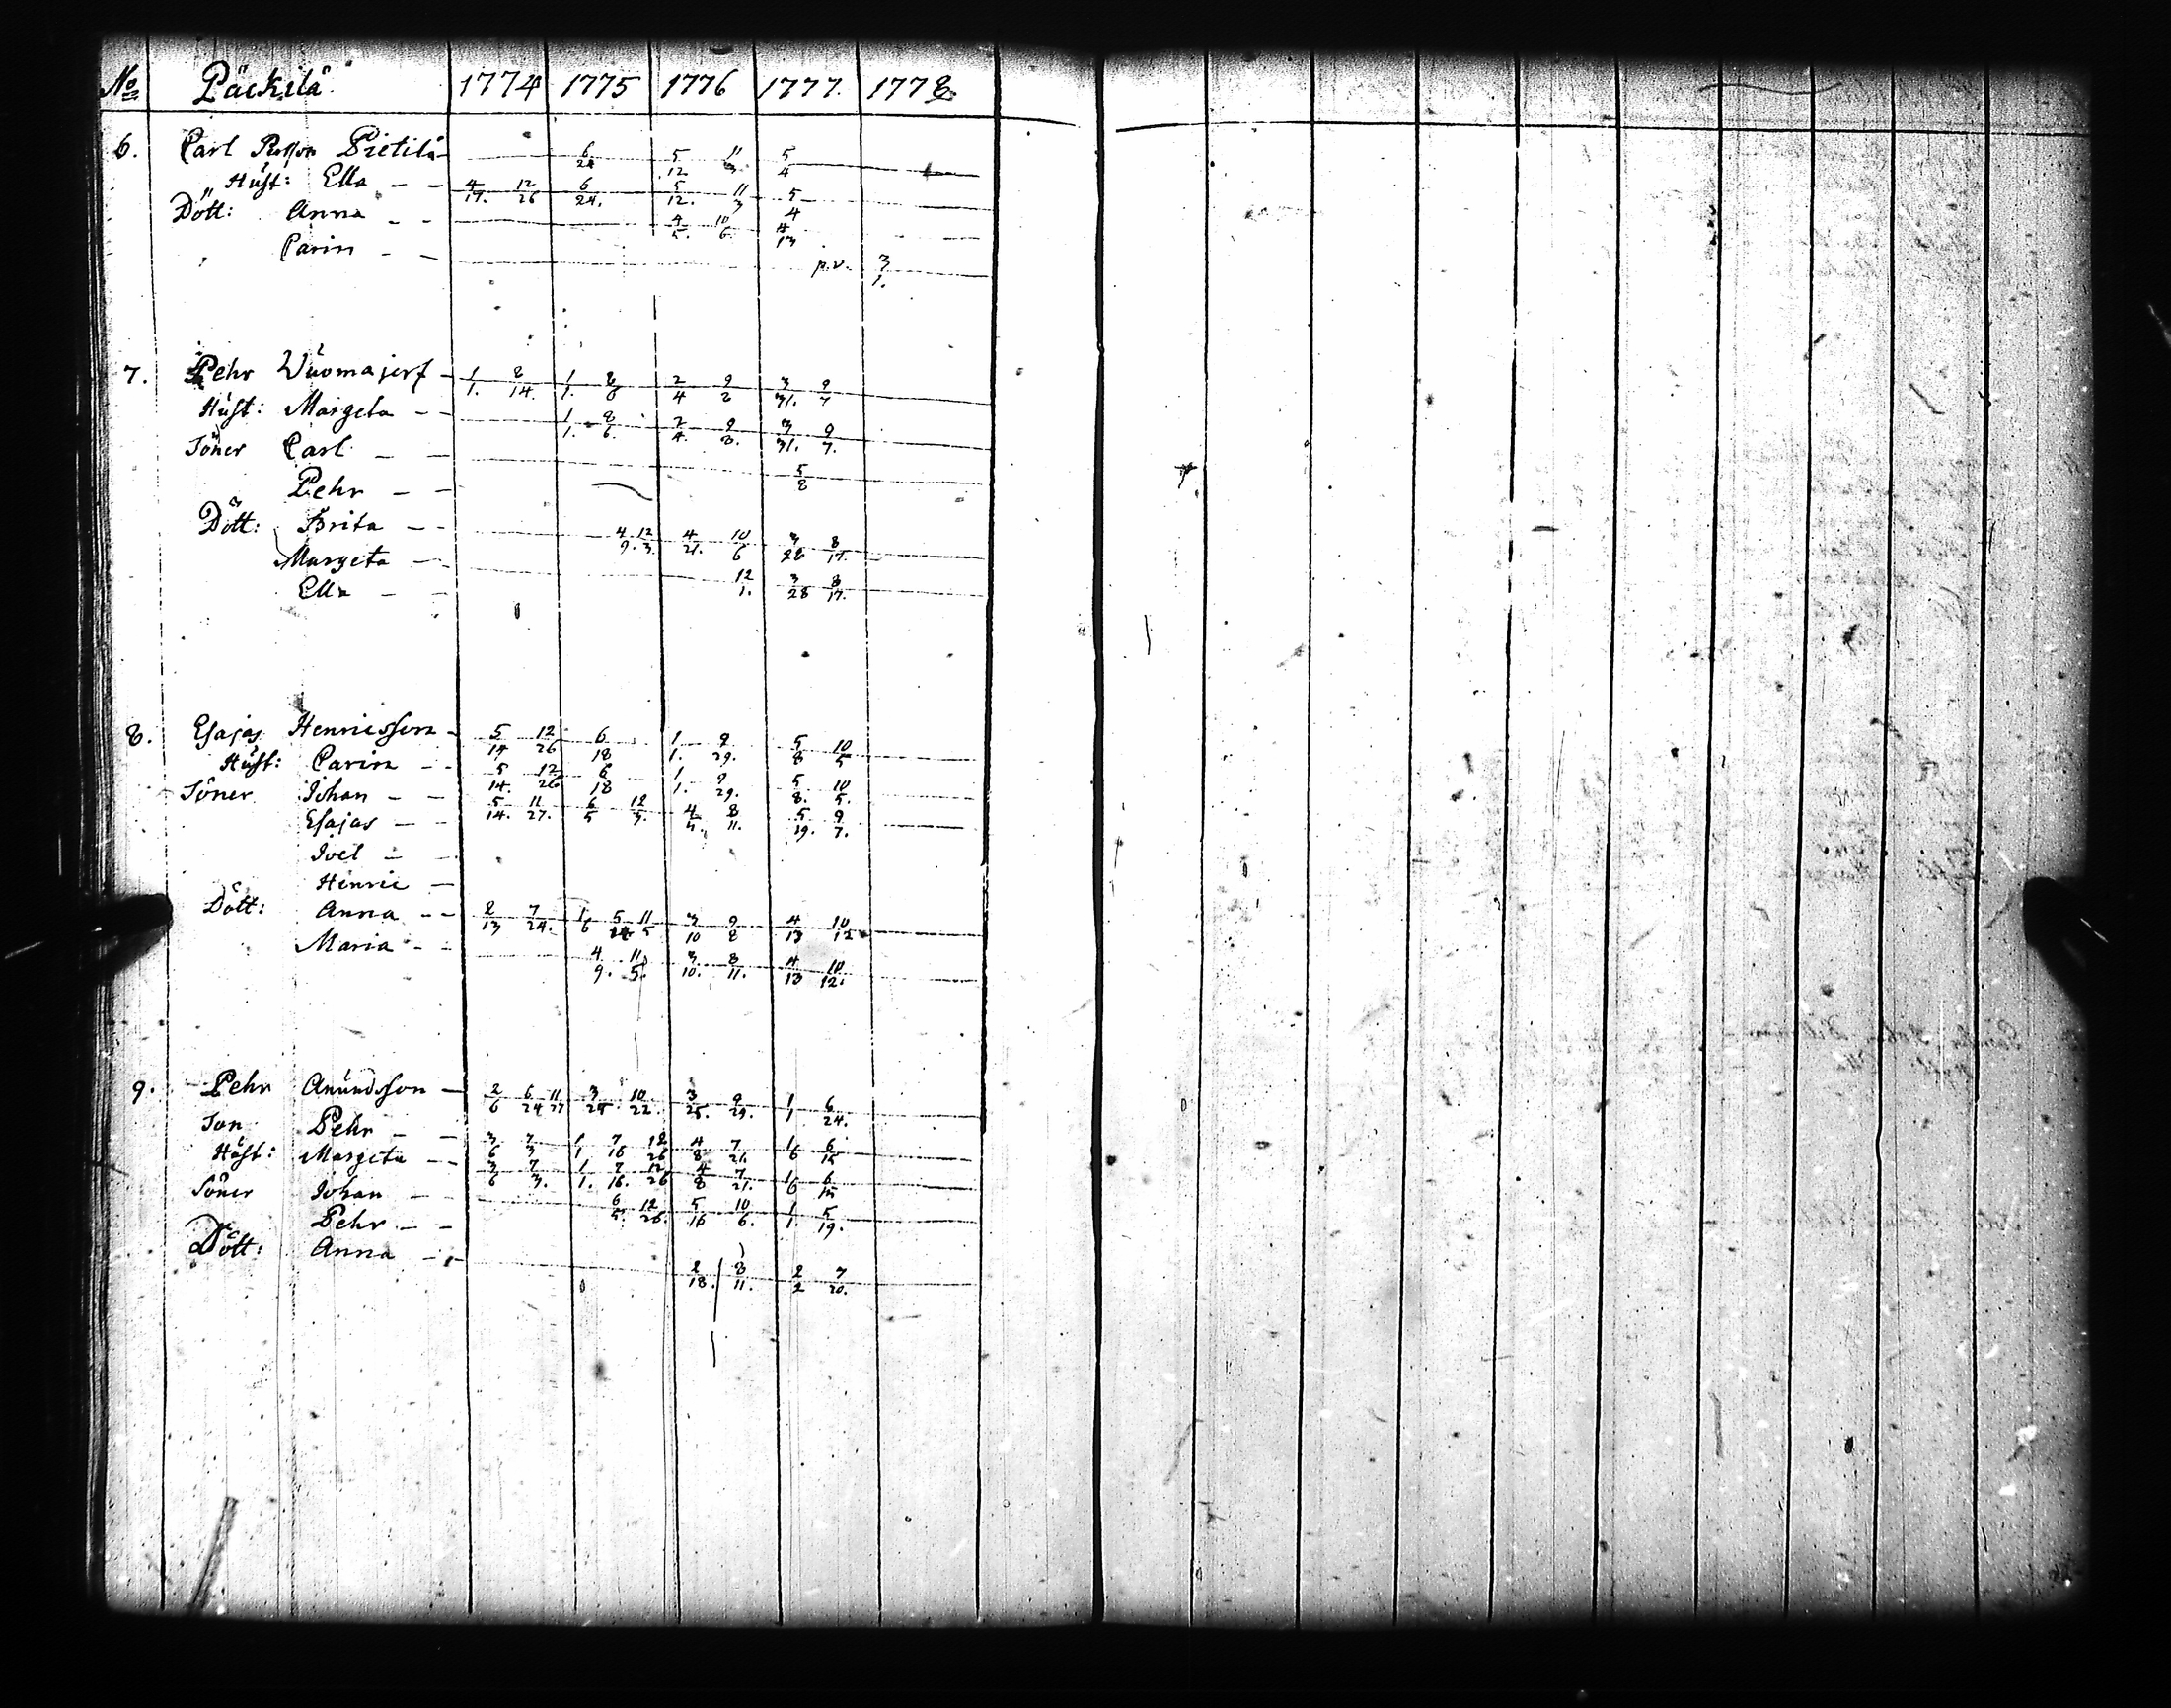 No Päckilä 1774 1775 1776 1777. 1778.
6. Carl Pietilä 6/24 5/12 11/3 5/4
Hust: Ella 4/17. 12/26 6/24. 5/12. 11/3 5/4
Dött: Anna 4/5. 10/6 4/13
Carin p.v. 3/1.
7. Pehr Wuomajerf 1/1. 8/14. 1/1. 8/6 2/4 9/2 3/31. 9/7
Hust: Margeta 1/1. 8/6. 2/4. 9/2. 3/31. 9/7.
Söner Carl 5/8
Pehr
Dött: Brita 4/9. 12/3. 4/21. 10/6 3/28 8/17.
Margeta 12/1. 3/28 8/17.
Ella
8. Esajas Henricsson 5/14 12/26 6/18 1/1. 9/29. 5/8 10/5
Hust: Carin 5/14. 12/26 6/18 1/1. 9/29. 5/8. 10/5.
Söner Johan 5/14. 11/27. 6/5 12/3. 4/5. 8/11. 5/19. 9/7.
Esajas
Joel
Henric
Dött: Anna 2/13 7/24. 1/6 5/14 11/5 3/10 9/8 4/13 10/12
Maria 4/9. 11/5. 3/10. 8/11. 4/13 10/12.
9. Pehr Anundsson 2/6 6/24 11/27 3/25 10/22. 3/25. 9/29. 1/1 6/24.
Son Pehr 3/6 7/3 1/1 7/16 12/26 4/8 7/21. 1/6 6/15
Hust: Margeta 3/6 7/3. 1/1. 7/16. 12/26 4/8 7/21. 1/6 6/15
Söner Johan 6/5. 12/26. 5/16 10/6. 1/1. 5/19.
Pehr
Dött: Anna 2/18. 8/11. 2/2 7/20.